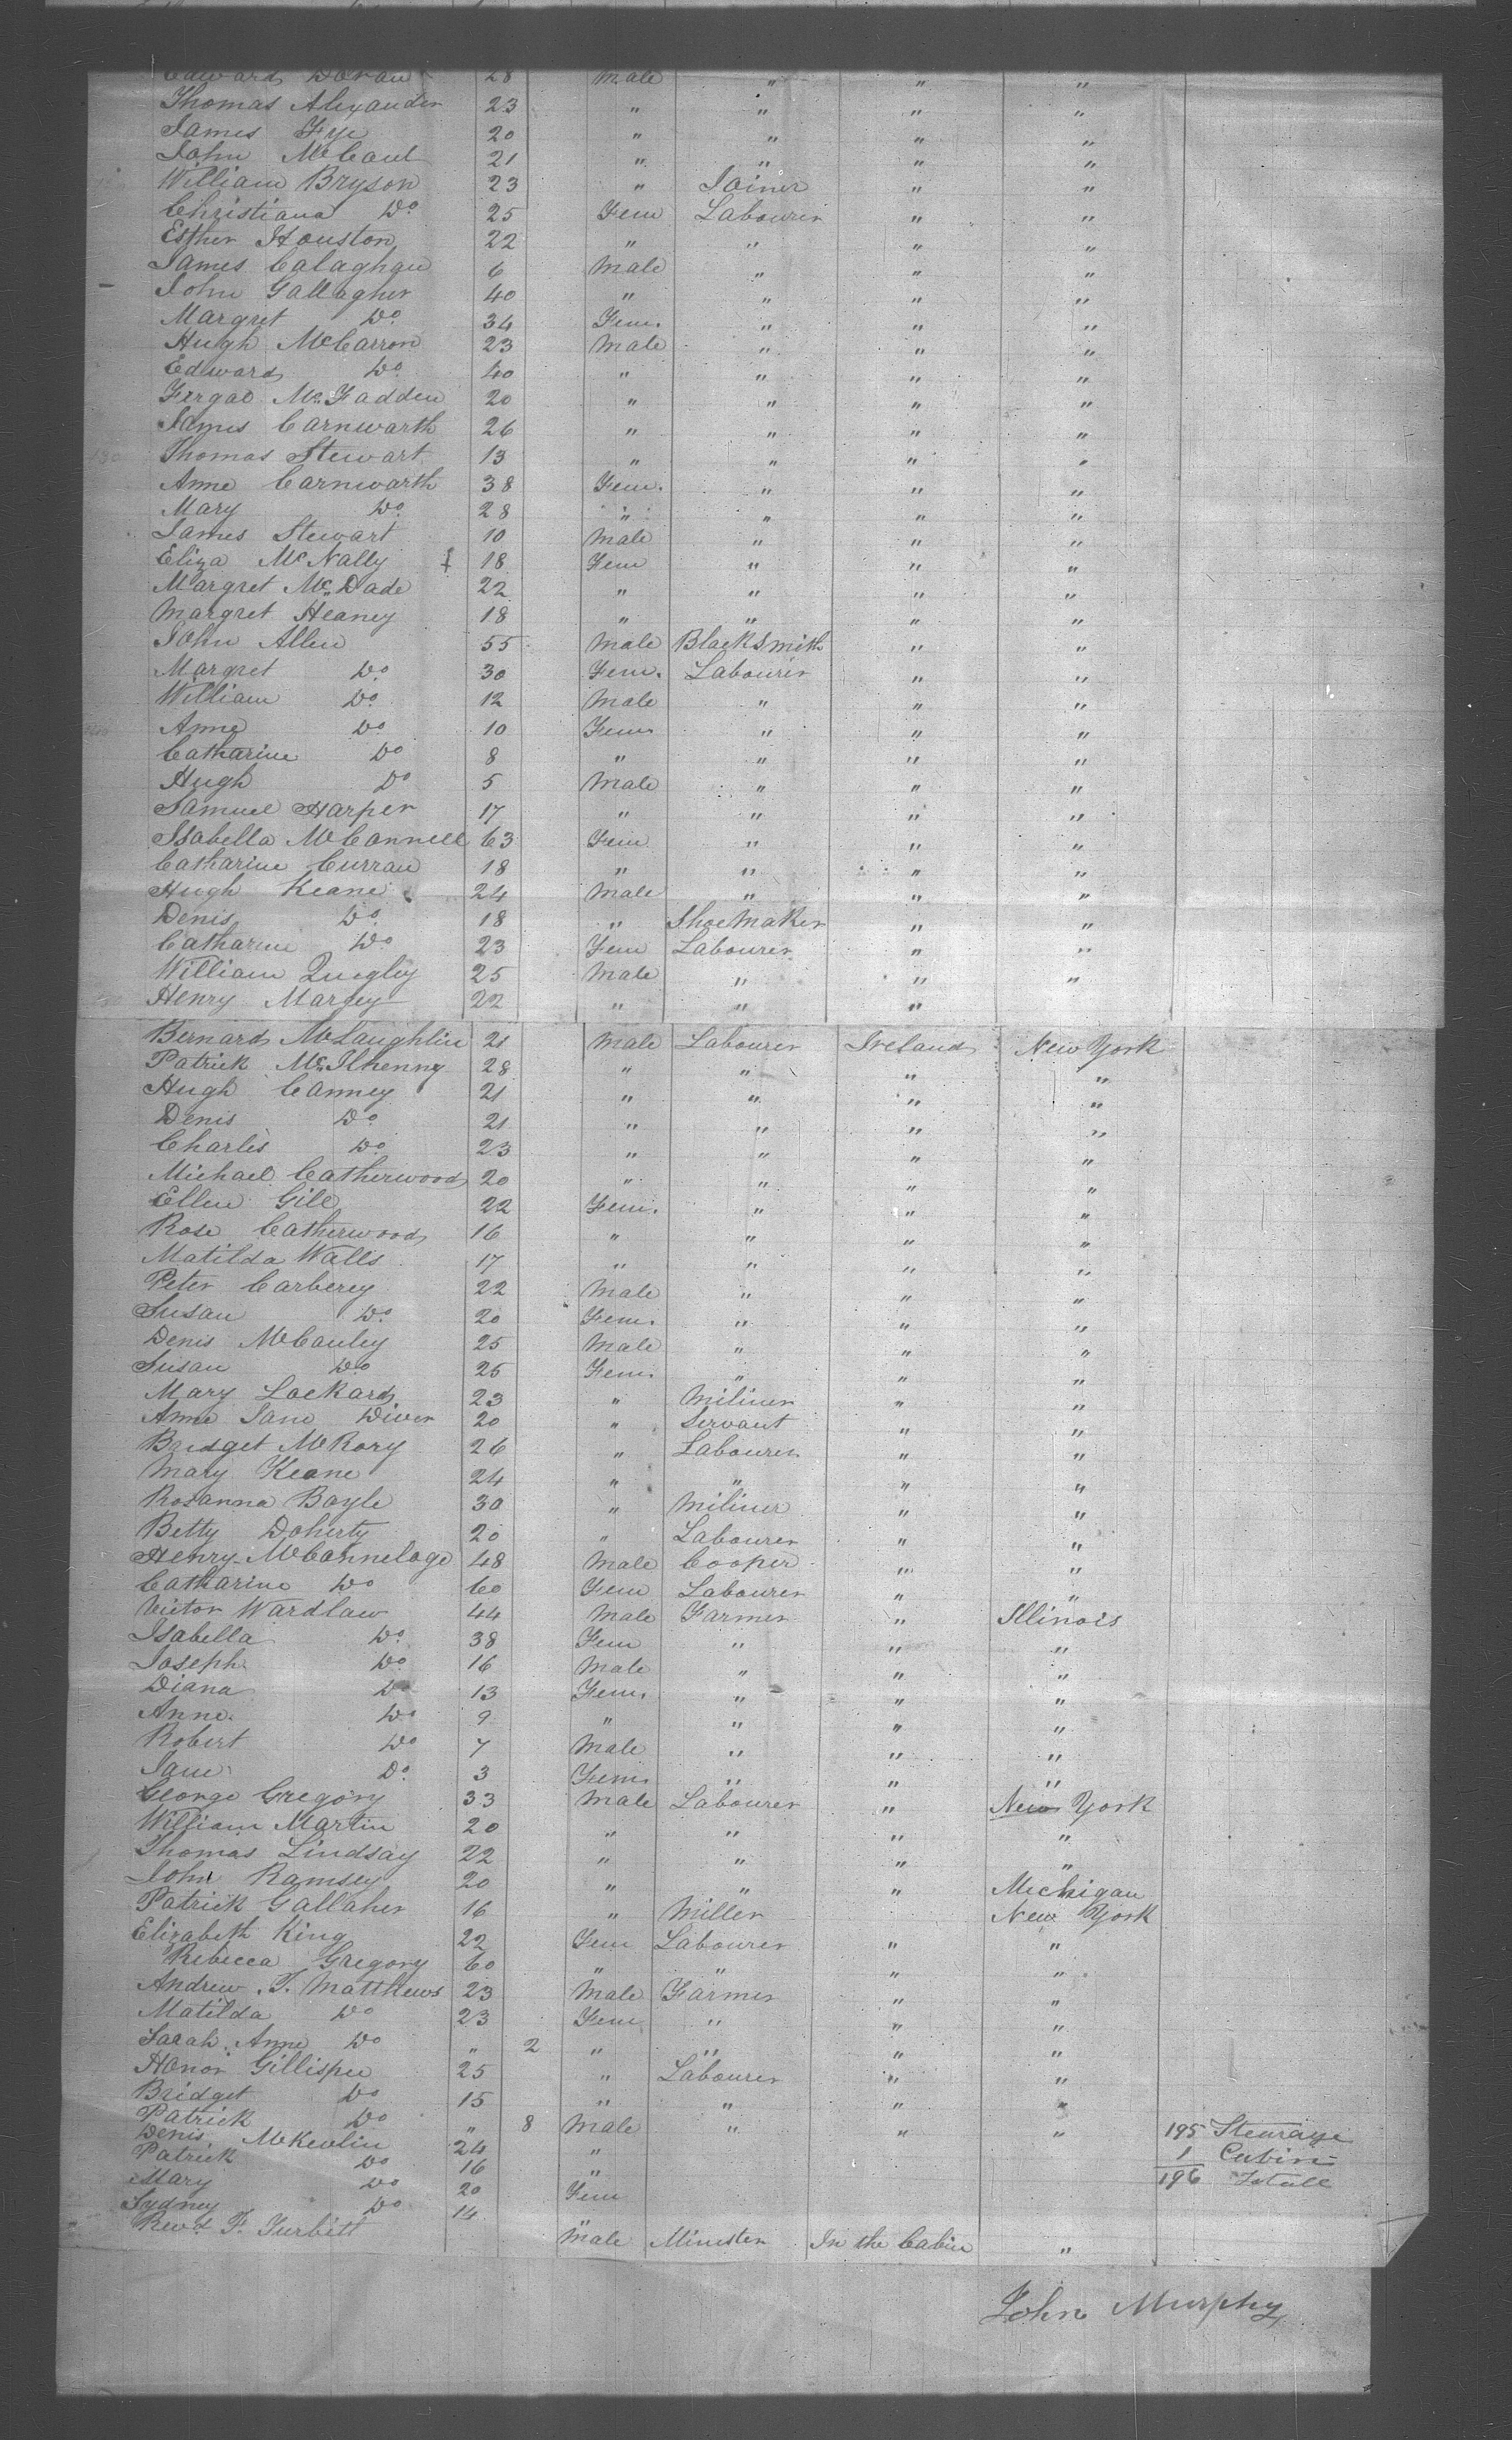 Edward Doran 28 Male " " "
Thomas Alexander 23 " " " "
James Fye 20 " " " "
John McCaul 21 " " " "
William Bryson 23 " Joiner " "
Christiana Do 25 Fem Labourer " "
Esther Houston 22 " " " "
James Calaghan 6 Male " " "
John Gallagher 40 " " " "
Margret Do 34 Fem. " " "
Hugh McCarron 23 Male " " "
Edward Do 40 " " " "
Fergal McFadden 20 " " " "
James Carnwarth 26 " " " "
130 Thomas Stewart 13 " " " "
Anne Carnwarth 38 Fem. " " "
Mary Do 28 " " " "
James Stewart 10 Male " " "
Eliza McNally 18 Fem " " "
Margret McDade 22 " " " "
Margret Heaney 18 " " " "
John Allen 55 Male Blacksmith " "
Margret Do 30 Fem. Labourer " "
William Do 12 Male " " "
Anne Do 10 Fem " " "
Catharine Do 8 " " " "
Hugh Do 5 Male " " "
Samuel Harper 17 " " " "
Isabella McConnell 63 Fem " " "
Catharine Curran 18 " " " "
Hugh Keane 24 Male " " "
Denis Do 18 " Shoemaker " "
Catharine Do 23 Fem Labourer " "
William Quigley 25 Male " " "
Henry Margey 22 " " "
Bernard McLaughlin 21 Male Labourer Ireland New York
Patrick McIlhenny 28 " " " "
Hugh Canney 21 " " " "
Denis Do 21 " " " "
Charles Do 23 " " " "
Michael Catherwood 20 " " " "
Ellen Gill 22 Fem. " " "
Rose Catherwood 16 " " " "
Matilda Walls 17 " " " "
Peter Carberey 22 Male " " "
Susan Do 20 Fem. " " "
Denis McCauley 25 Male " " "
Susan Do 26 Fem. " " "
Mary Lockard 23 " Miliner " "
Anne Jane Diver 20 " Servant " "
Bridget McRory 26 " Labourer " "
Mary Keane 24 " " " "
Rosanna Boyle 30 " Miliner " "
Betty Doherty 20 " Labourer " "
Henry McConnelogo 48 Male Cooper " "
Catharine Do 60 Fem Labourer " "
Victor Wardlaw 44 Male Farmer " Illinois
Isabella Do 38 Fem " " "
Joseph Do 16 Male " " "
Diana Do 13 Fem. " " "
Anne Do 9 " " " "
Robert Do 7 Male " " "
Jane Do 3 Fem. " " "
George Gregory 33 Male Labourer " New York
William Martin 20 " " " "
Thomas Lindsay 22 " " " "
John Ramsey 20 " " " Michigan
Patrick Gallaher 16 " Miller New York
Elizabeth King 22 Fem Labourer " "
Rebecca Gregory 60 " " " "
Andrew J. Matthews 23 Male Farmer " "
Matilda Do 23 Fem " " "
Sarah Anne Do " 2 " " " "
Honor Gillispie 25 " Labourer " "
Bridget Do 15 " " " "
Patrick Do " 8 Male " " " 195 Steurage
Denis McKevlin 24 " 1 Cabin
Patrick Do 16 " 196 Totall
Mary Do 20 Fem
Sydney Do 14 "
Revd F. Turbitt Male Minister In the Cabin "
John Murphy